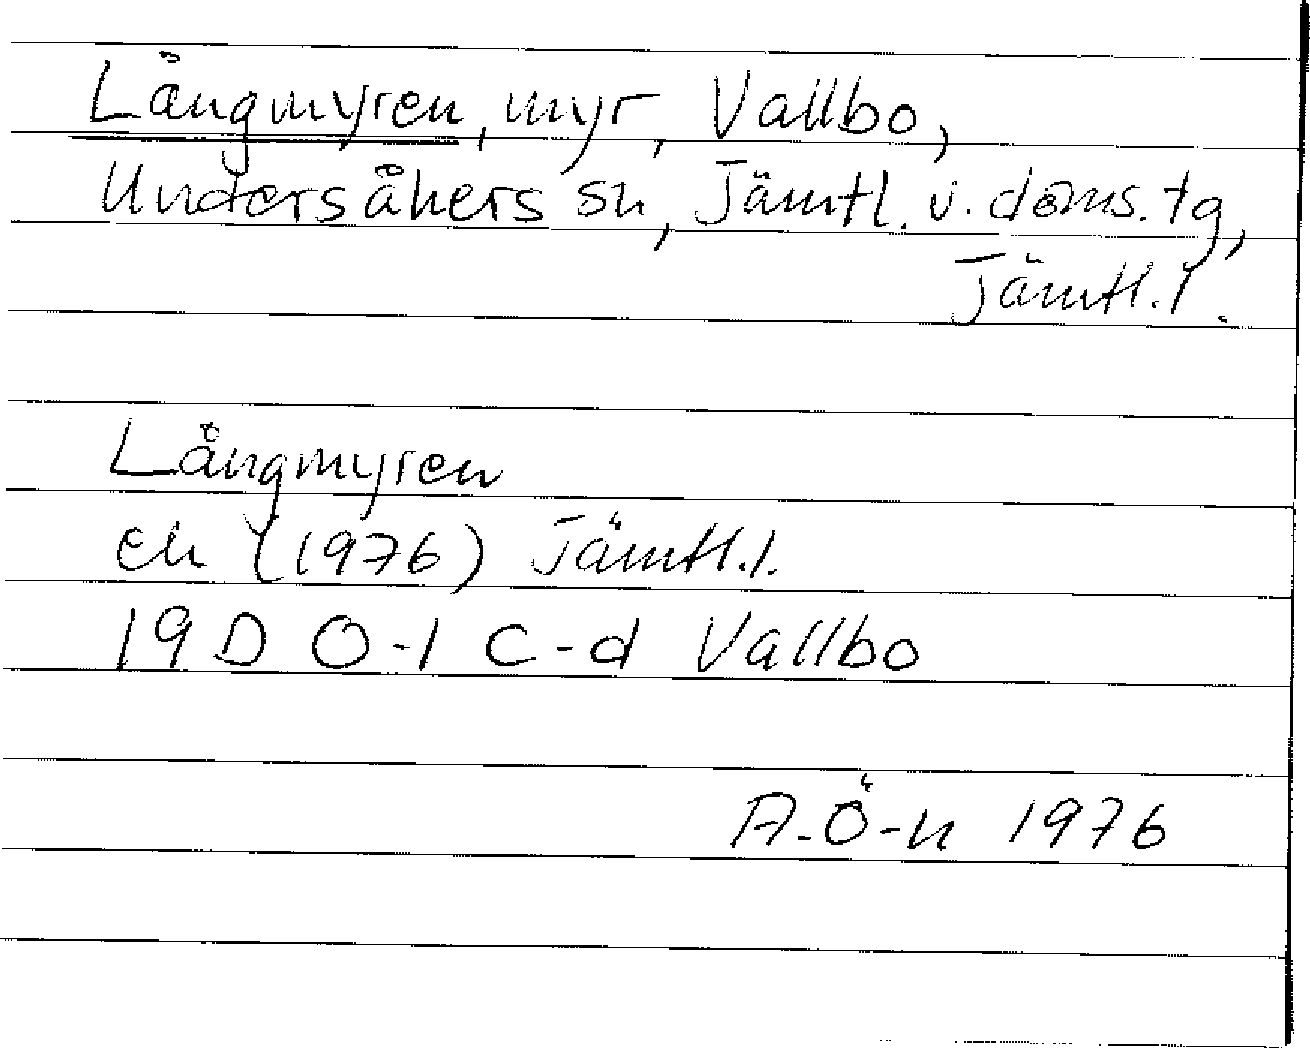 Långmyren, myr, Vallbo,
Undersåkers sn, Jämtl. v. doms. tg,
Jämtl. l.
Långmyren
ek (1976) Jämtl. l.
19 D 0-1 c-d Vallbo
A-Ö-n 1976